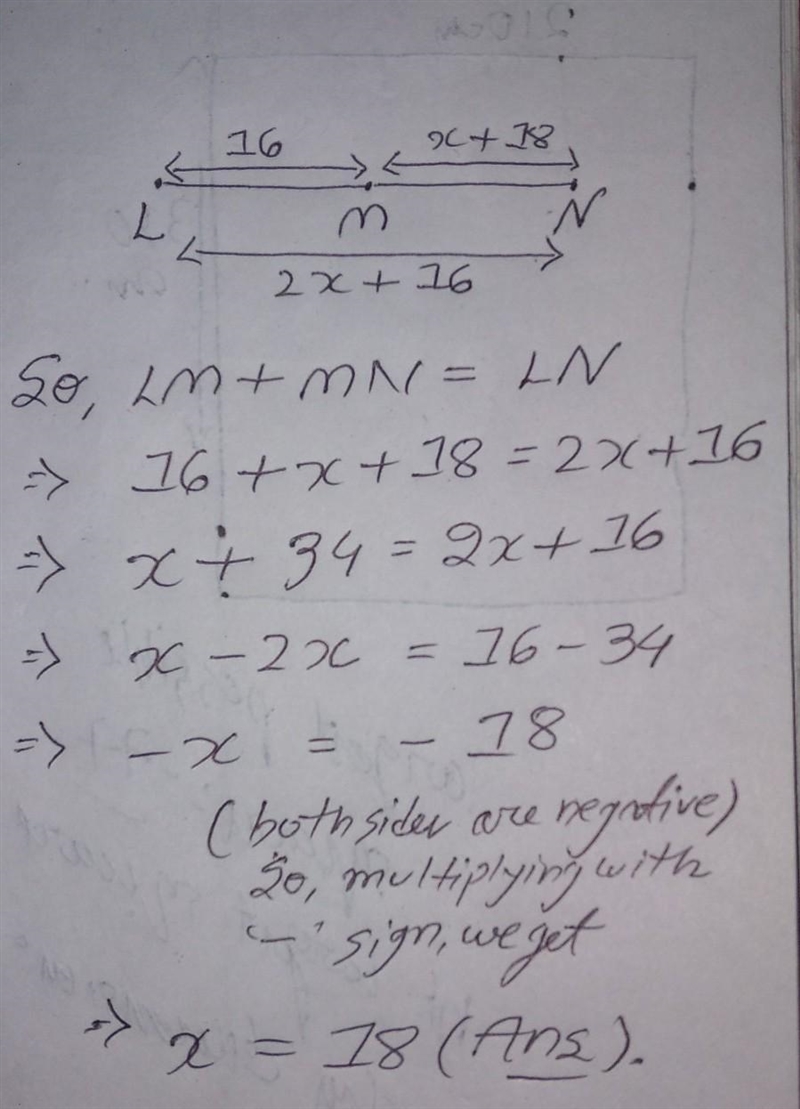 16 x+18
L M N
2x+16
So, LM+MN = LN
⇒ 16+x+18=2x+16
⇒ x+34=2x+16
⇒ x-2x = 16-34
⇒ -x = -18
(both sides are negative)
So, multiplying with
'-' sign, we get
⇒ x = 18 (Ans).